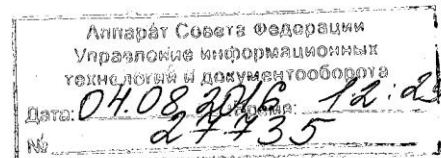 Аппарат Совета Федерации
Управление информационных
технологий и документооборота
Дата: 04.08.2016 Время: 12:2
№ 27735